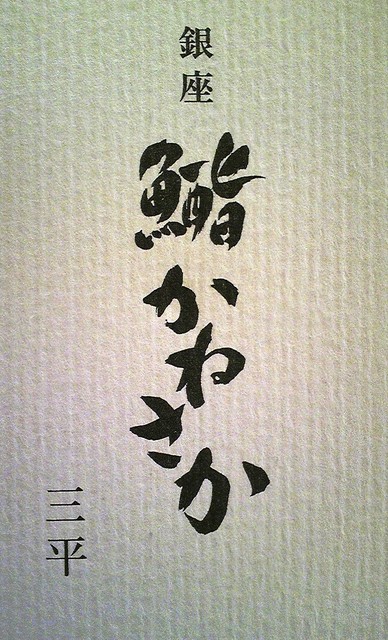 銀座
鮨かねさか
三平